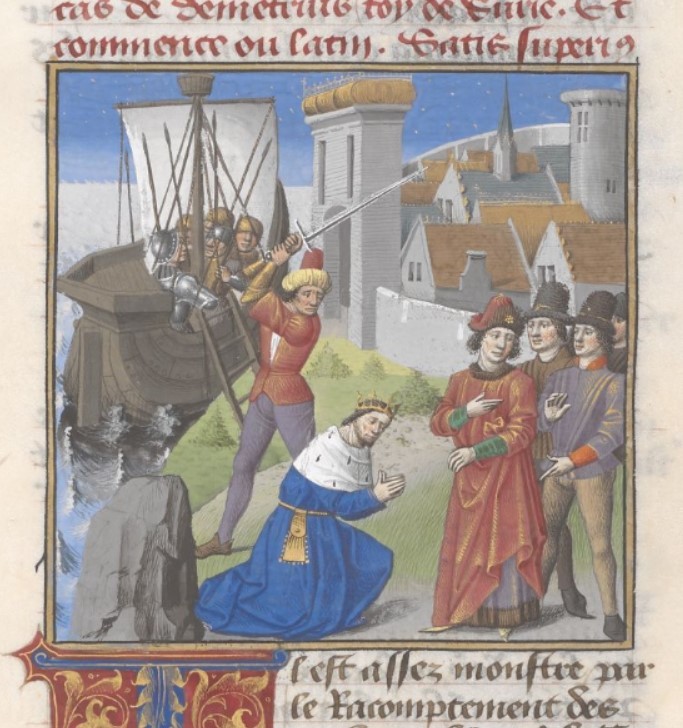 cas de demetrius roy de Surie. Et
commence ou latin. Satis superꝰ
l est assez monstre par
le Racomptement des